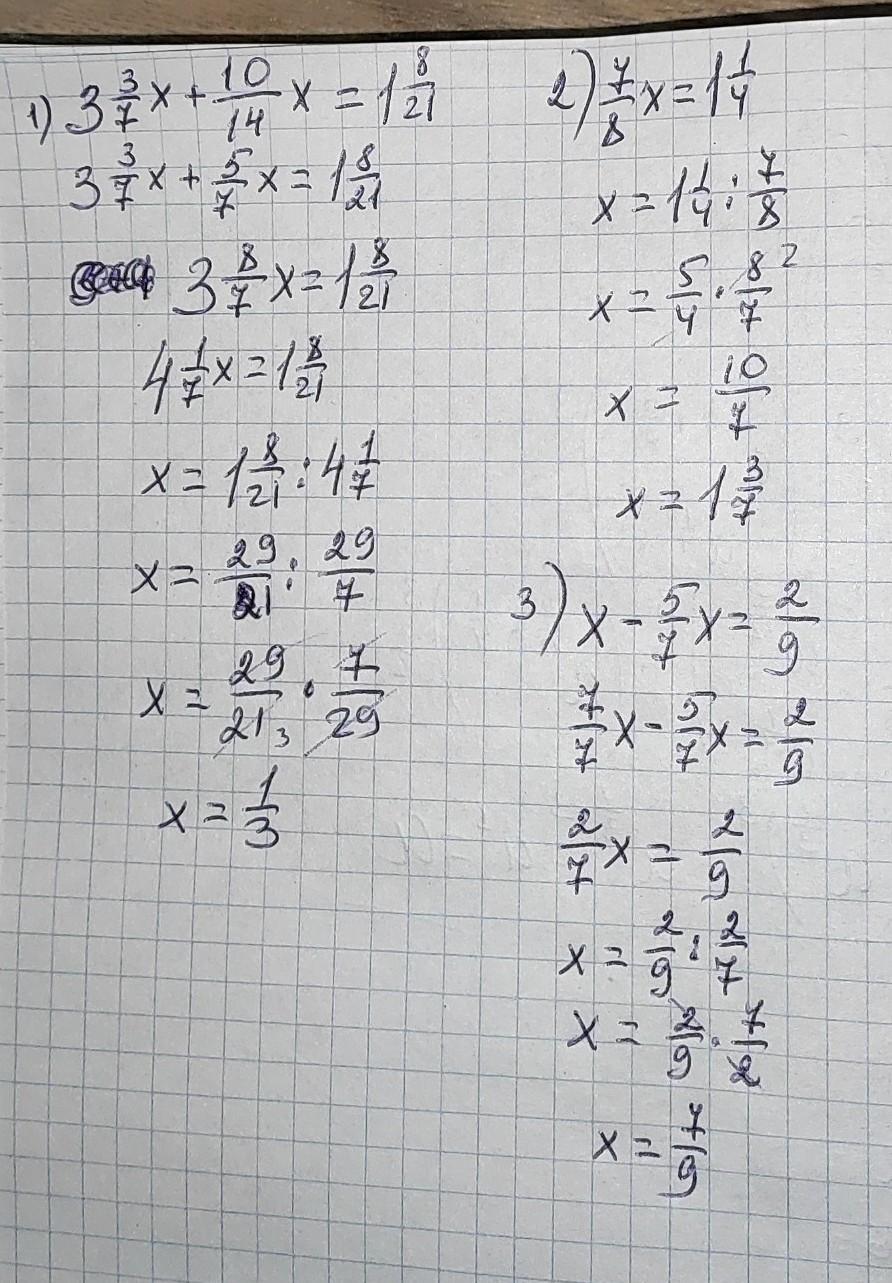 1) 3 3/7 x + 10/14 x = 1 8/21
3 3/7 x + 5/7 x = 1 8/21
3 8/7 x = 1 8/21
4 1/7 x = 1 8/21
x = 1 8/21 : 4 1/7
x = 29/21 : 29/7
x = 29/21 3 · 7/29
x = 1/3
2) 7/8 x = 1 1/4
x = 1 1/4 : 7/8
x = 5/4 · 8 2/7
x = 10/7
x = 1 3/7
3) x - 5/7 x = 2/9
7/7 x - 5/7 x = 2/9
2/7 x = 2/9
x = 2/9 : 2/7
x = 2/9 · 7/2
x = 7/9